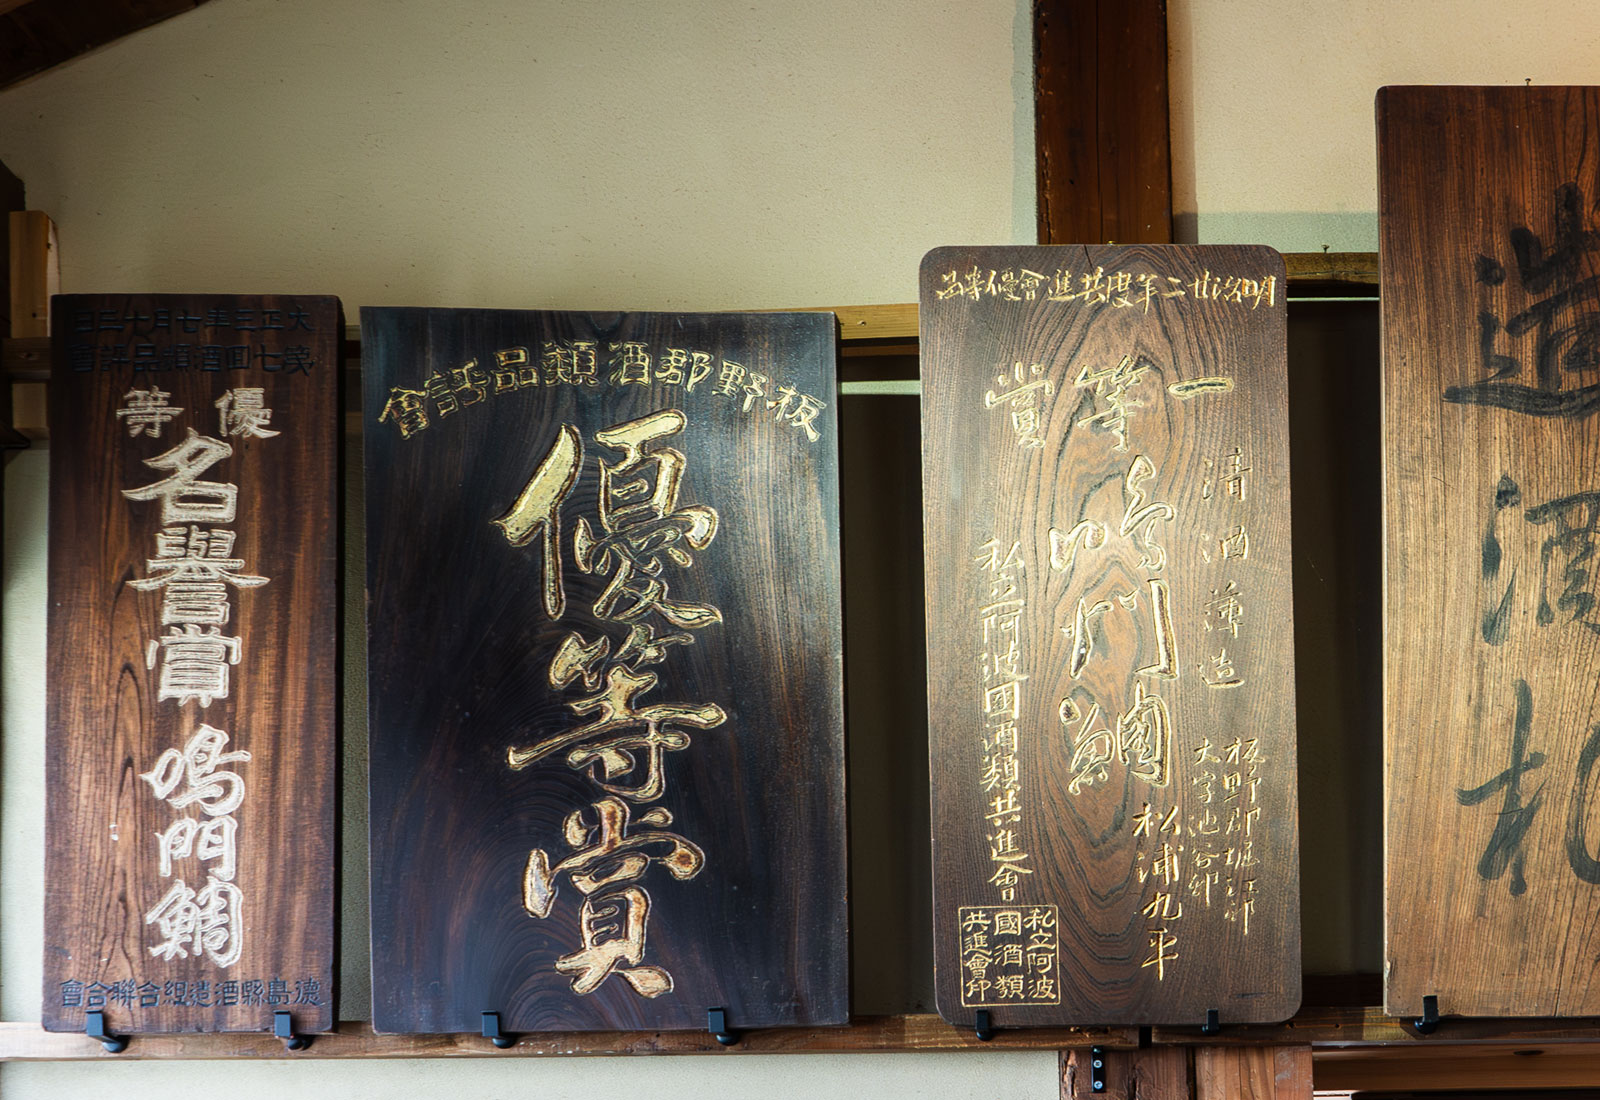 大正三年七月十三日
第七回酒類品評會
優等
名譽賞
鳴門鯛
德島縣酒造組合聯合會
板野郡酒類品評會
優等賞
明治廿二年度共進會優等品
一等賞
清酒薄造
鳴門鯛
板野郡堀江邨
大字池谷邨
松浦九平
私立阿波國酒類共進會
私立阿波
國酒類
共進會印
造酒札